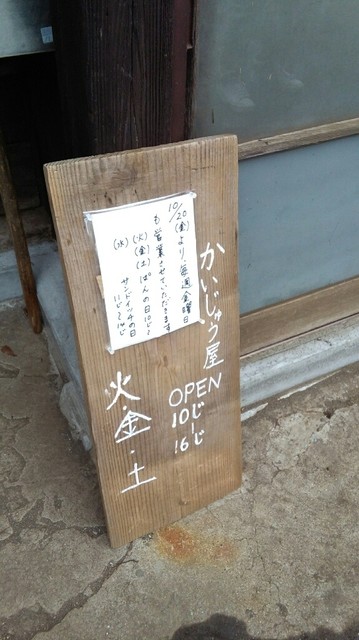 かいじゅう屋
OPEN
10じ〜16じ
火・金・土
10/20(金)より、毎週金曜日
も営業させていただきます
(火)(金)(土) ぱんの日10じ〜
(水) サンドイッチの日